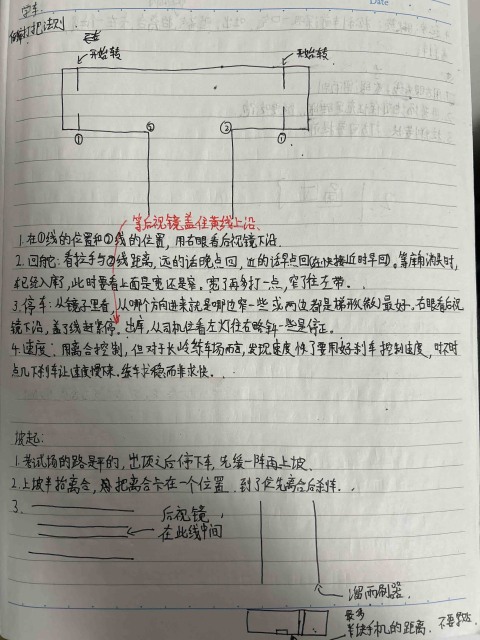 倒车
倒车打把法则
开始转
开始转
① ② ② ①
等后视镜盖住黄线上沿
1. 在①线的位置和②线的位置，用右眼看后视镜下沿.
2. 回舵：看拉手与②线距离，远的话晚点回，近的话早点回(在快接近时早回)。等库角消失时，
车已经入库了，此时要看上面是宽还是窄。宽了再多打一点，窄了往左带.
3. 停车：从镜子里看，从哪个方向进来就是哪边窄一些或两边都是梯形(微)最好。右眼看后视
镜下沿，盖了线赶紧停。出库，从司机位看左灯往右略斜一些是停正。
4. 速度：用离合控制，但对于长岭练车场而言，发现速度快了要用好刹车控制速度，时不时
点几下刹车让速度慢下来. 练车求稳而非求快.
坡起：
1. 考试场的路是平的，出项之后停下车，先缓一阵再上坡.
2. 上坡半抬离合，把离合卡在一个位置. 到了位先离合后刹车.
3.
后视镜
在此线中间
溜雨刷器.
最多
半块手机的距离. 不要